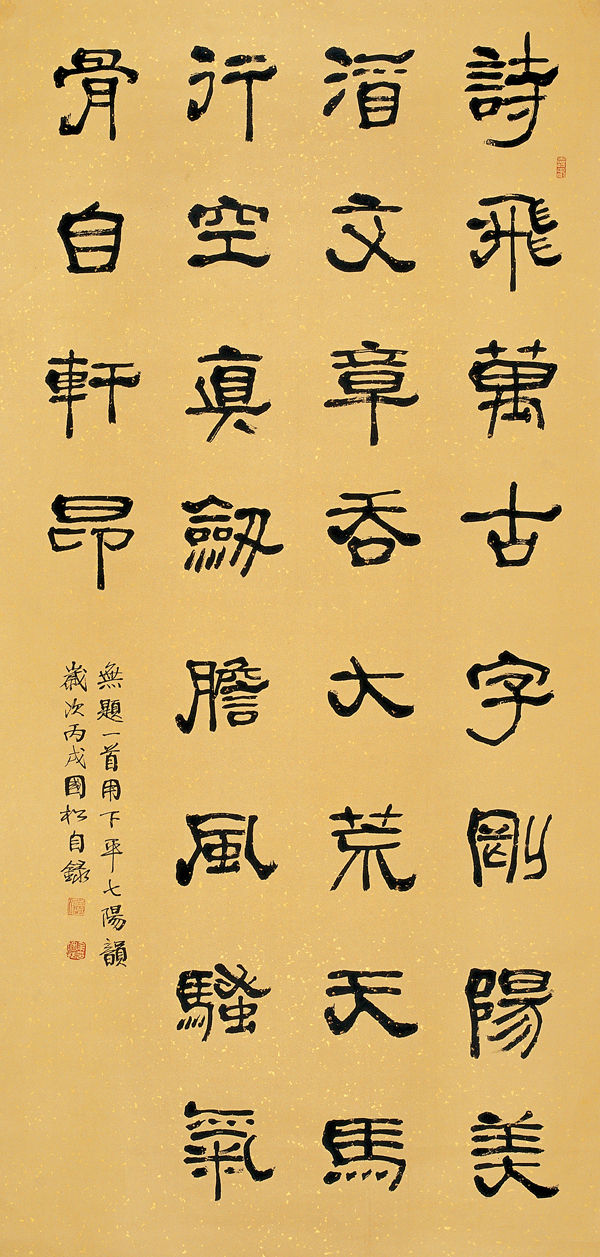 詩飛萬古字剛陽美
酒文章吞大荒天馬
行空眞劒膽風騷氣
骨自軒昂
無題一首用下平七陽韻
歲次丙戌國松自録